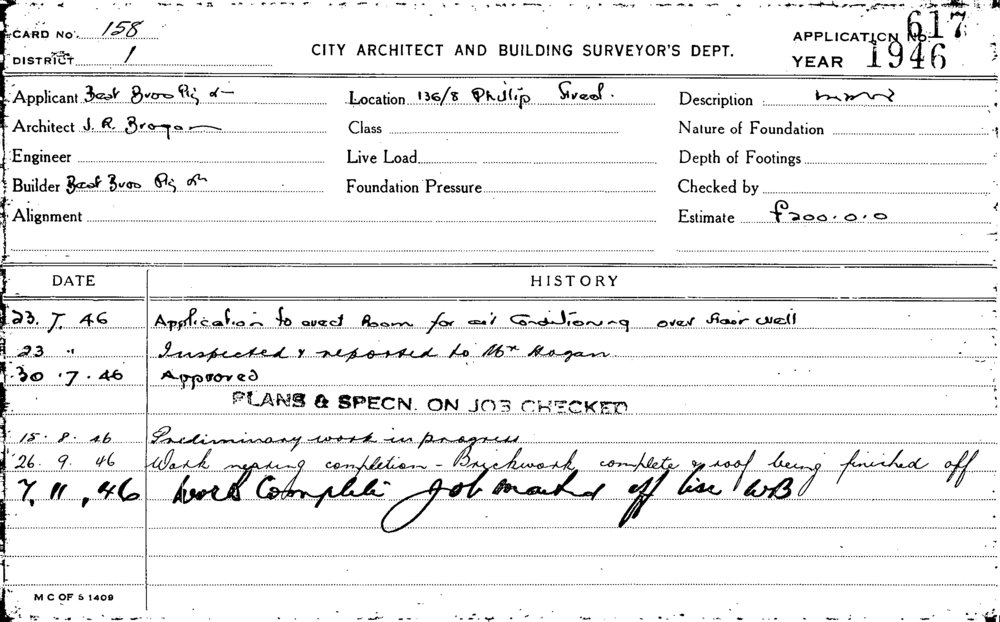 CARD No. 158
DISTRICT 1
CITY ARCHITECT AND BUILDING SURVEYOR'S DEPT.
APPLICATION No. 617
YEAR 1946
Applicant Best Bros Pty
Location 136/8 Phillip Street.
Description
Architect J. R. Brogan
Class
Nature of Foundation
Engineer
Live Load
Depth of Footings
Builder Best Bros Pty
Foundation Pressure
Checked by
Alignment
Estimate £200.0.0
DATE
HISTORY
23. 7. 46 Application to erect Room for air Conditioning over Stair well
23 " Inspected & reported to Mr Hogan
30 . 7 . 46 Approved
PLANS & SPECN. ON JOB CHECKED
15. 8. 46 Preliminary work in progress
26. 9. 46 Work nearing completion - Brickwork complete & roof being finished off
7. 11. 46 Work Complete Job marked off WB
M C OF S 1409